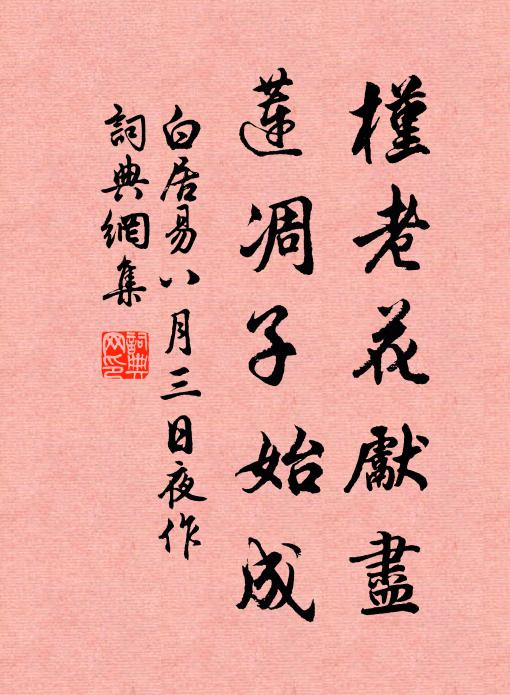 槿老花獻盡
蓮凋子始成
白居易八月三日夜作
詞典網集
詞典網印